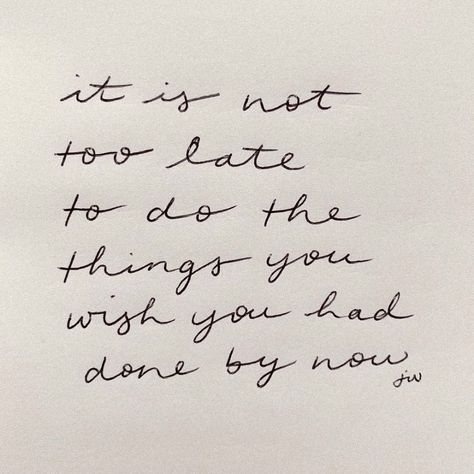 it is not
too late
to do the
things you
wish you had
done by now
jw